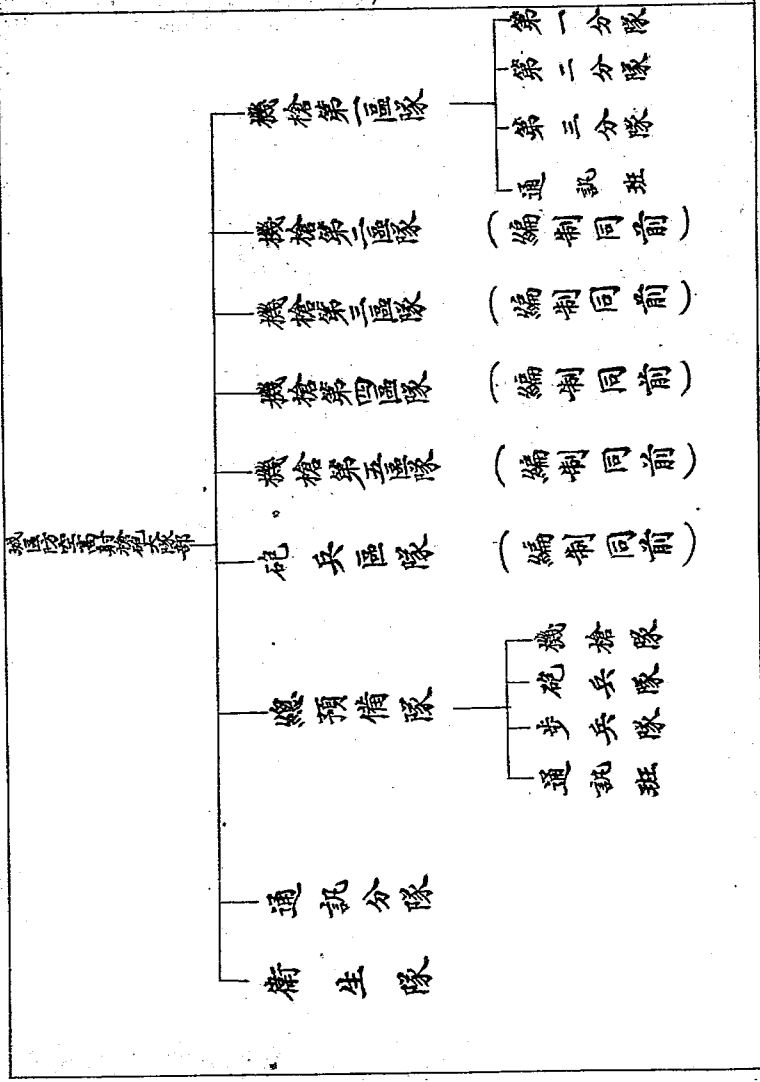 城區防空高射槍砲大隊部
機槍第一區隊
第一分隊
第二分隊
第三分隊
通訊班
機槍第二區隊
(編制同前)
機槍第三區隊
(編制同前)
機槍第四區隊
(編制同前)
機槍第五區隊
(編制同前)
砲兵區隊
(編制同前)
總預備隊
機槍隊
砲兵隊
步兵隊
通訊班
通訊分隊
衛生隊